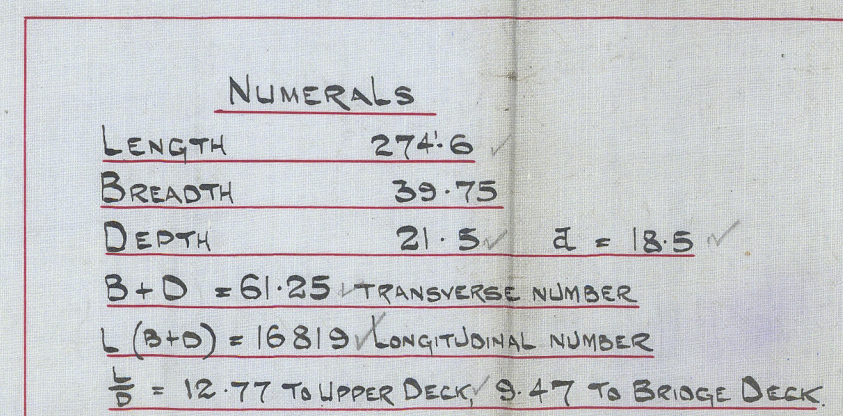 NUMERALS
LENGTH 274'.6
BREADTH 39.75
DEPTH 21.5 d = 18.5
B+D = 61.25 TRANSVERSE NUMBER
L (B+D) = 16819 LONGITUDINAL NUMBER
L/D = 12.77 TO UPPER DECK, 9.47 TO BRIDGE DECK.